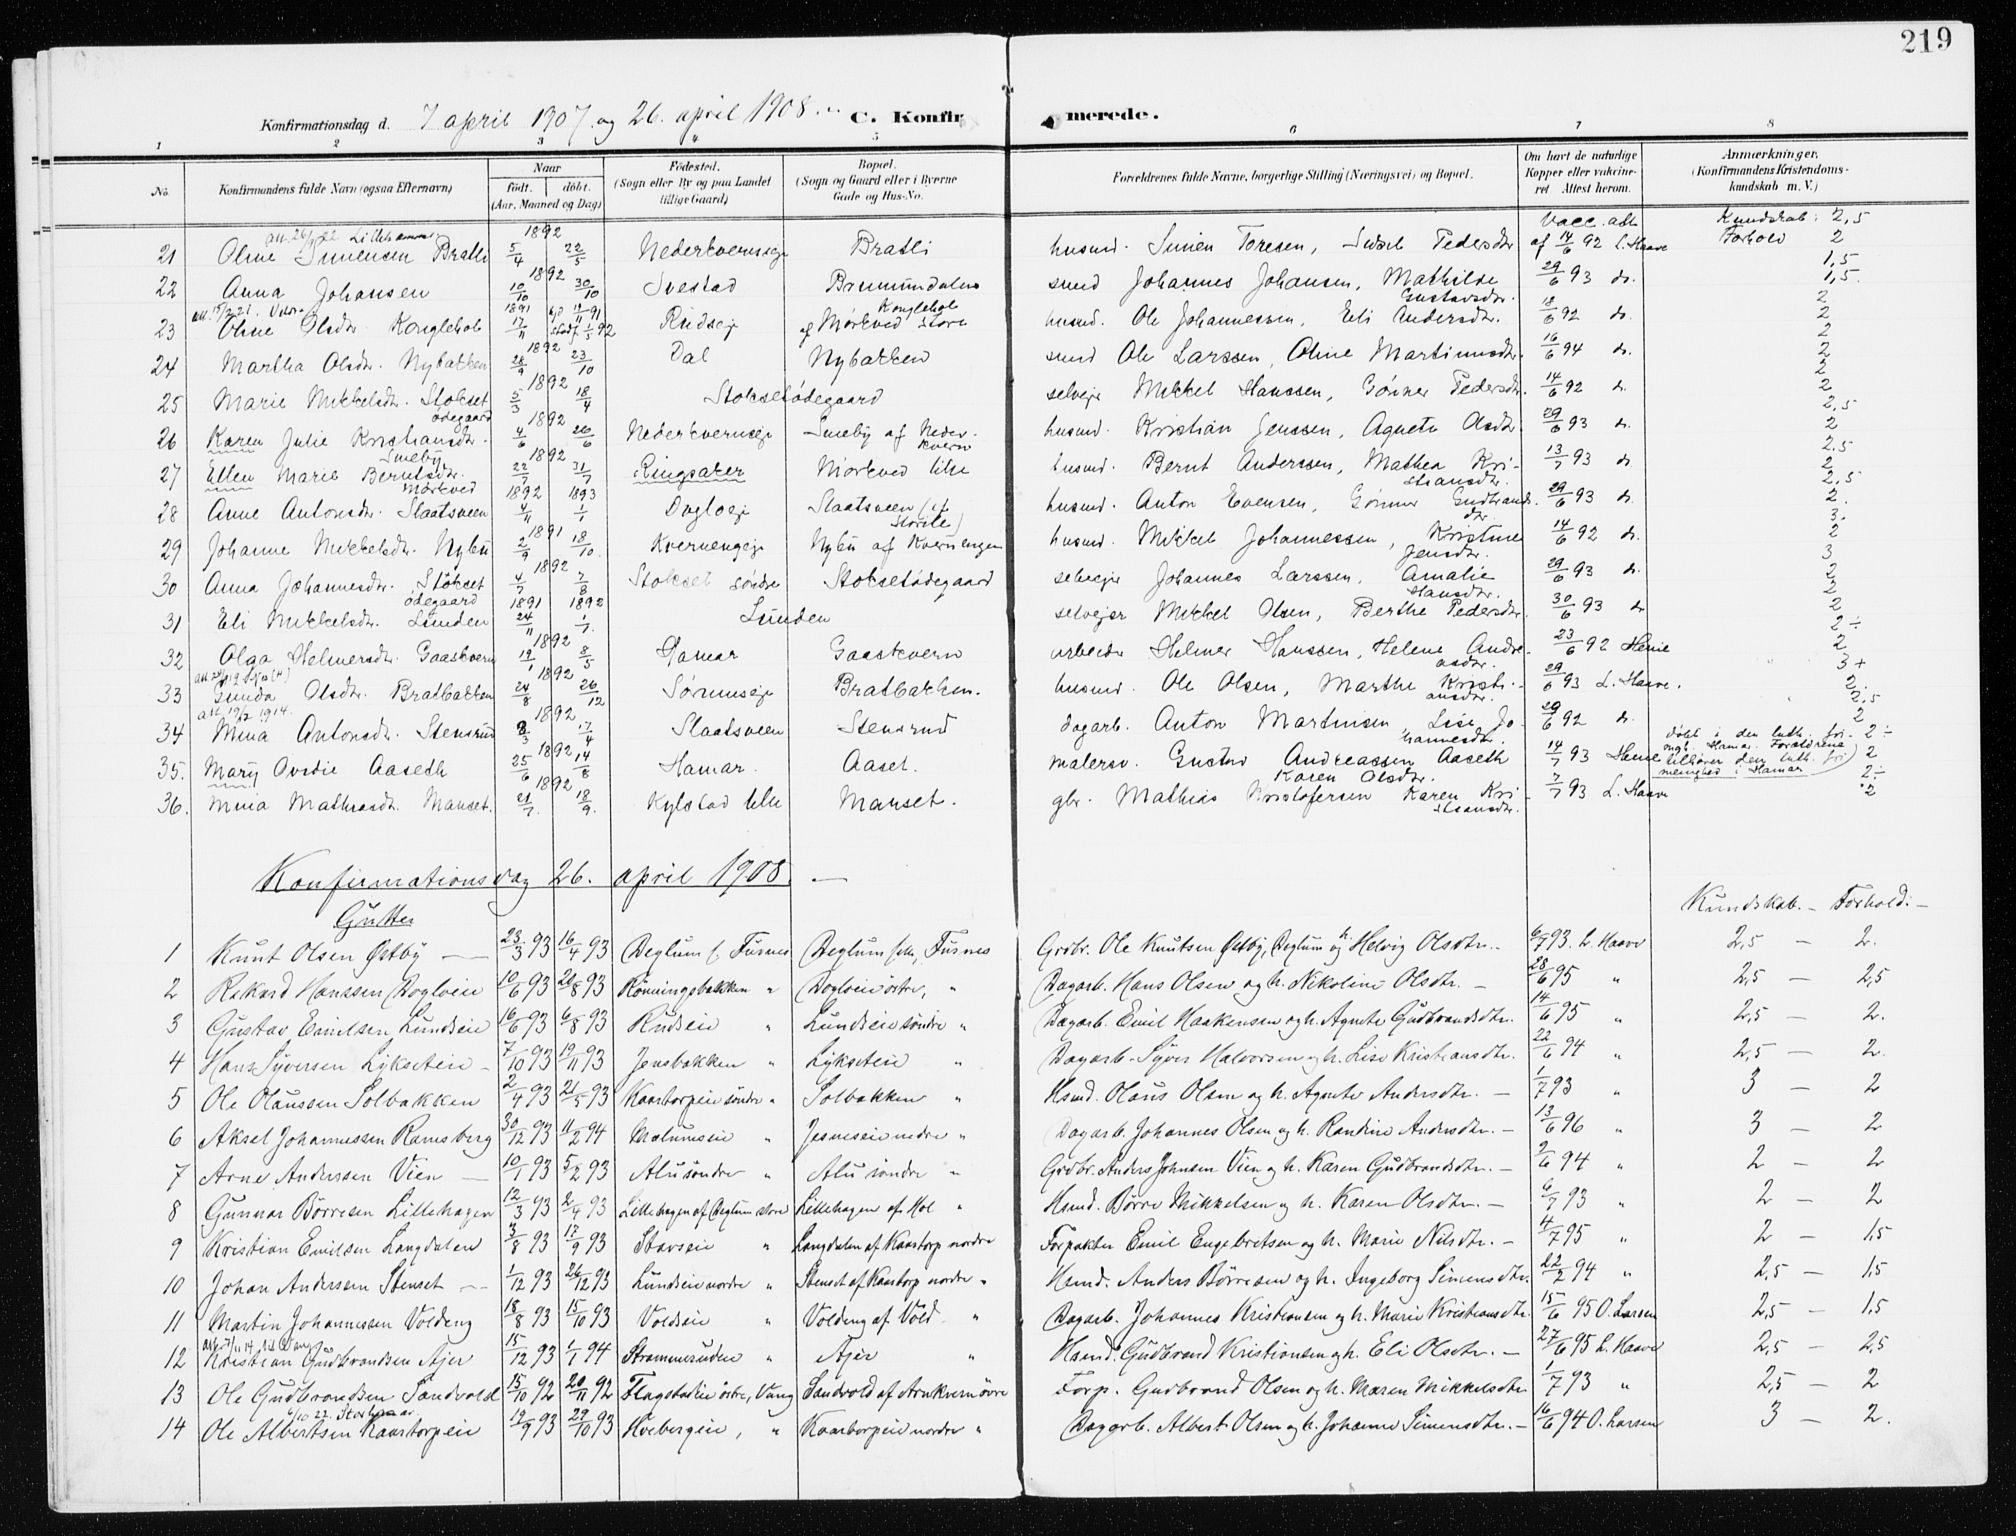 219
Konfirmationsdag d. 7 april 1907. og 26. april 1908. C. Konfirmerede.
1 2 3 4 5 6 7 8
No. Konfirmandens fulde Navn (ogsaa Efternavn) Naar født. døbt. (Aar, Maaned og Dag) Fødested. (Sogn eller By og paa Landet tillige Gaard) Bopæl. (Sogn og Gaard eller i Byerne Gade og Hus-No. Forældrenes fulde Navne, borgerlige Stilling (Næringsvei) og Bopæl. Om havt de naturlige Kopper eller vakcineret Attest herom. Anmærkninger. (Konfirmandens Kristendomskundskab m. V.)
21 Oline Simensen Bratli 1892 5/4 22/5 Nederkvernseje Bratli husmd. Simen Toresen, Sidsel Pedersdtr. Vacc. att. af 14/6 92 L. Haave Kundskab: 2,5 Forhold 2
22 Anna Johansen 1892 10/10 30/10 Svestad Brumunddalen smed Johannes Johansen, Mathilde Gustavsdtr. 29/6 93 do. 1,5 1,5
23 Oline Olsdtr. Konglehol 1891 17/11 Rudseje Konglehol af Mørkved store husmd. Ole Johannessen, Eli Andersdtr. 18/6 92 do. 2 2
24 Martha Olsdtr. Nybakken 1892 28/9 23/10 Dal Nybakken smed Ole Larssen, Oline Martinusdtr. 16/6 94 do. 2 2
25 Marie Mikkelsdtr. Stokset ødegaard 1892 5/3 18/4 Stoksetødegaard selvejer Mikkel Hanssen, Gønner Pedersdtr. 14/6 92 do. 2 2
26 Karen Julie Kristiansdtr. Smeby 1892 4/6 26/6 Nederkvernseje Smeby af Nederkvern husmd. Kristian Jenssen, Agnete Olsdtr. 29/6 93 do. 2,5 2
27 Ellen Marie Berntsdtr. Mørkved 1892 22/7 31/7 Ringsaker Mørkved lille husmd. Bernt Anderssen, Mathea Kristiansdtr. 13/7 93 do. 2,5 2
28 Anne Antonsdtr. Slaatsveen 1892 4/11 1893 1/1 Dogloeje Slaatsveen husmd. Anton Evensen, Gønner Gudbrandsdtr. 29/6 93 do. 2,5 2.
29 Johanne Mikkelsdtr. Nybu 1891 2/9 18/10. Kvernengeje Nybu af Kvernengen husmd. Mikkel Johannessen, Kristine Jensdtr. 14/6 92 do. 3. 2
30 Anna Johannesdtr. Stokset ødegaard 1892 4/7 7/8 Stokset søndre Stoksetødegaard selvejer Johannes Larssen, Amalie Hansdtr. 29/6 93 do. 3 2
31 Eli Mikkelsdtr. Lunden 1891 24/11 1892 1/1 Lunden selvejer Mikkel Olsen, Berthe Pedersdtr. 30/6 93 do 2 2
32 Olga Helmersdtr. Gaaskvern 1892 19/1 8/5 Hamar Gaaskvern arbeider Helmer Hanssen, Helene Andreasdtr. 23/6 92 Heuie 2÷ 2
33 Gunda Olsdtr. Bratbakken 1892 24/8 26/12 Sørumseje Bratbakken. husmd. Ole Olsen, Marthe Kristiansdtr. 29/6 93 L. Haave. 3+ 2.
att. 19/2 1914.
34 Mina Antonsdtr. Stensrud 1892 8/3 17/4 Slaatsveen Stensrud dagarb. Anton Martinsen, Lise Johannesdtr. 29/6 92 do. 2,5 2
35. Mary Ovidie Aaseth 1892 25/6 14/8 Hamar. Aaset. malersv. Gustav Andreassen Aaseth Karen Olsdtr. 14/7 93 døbt i den luth. frimgh. Hamar. Forældrene tilhører den luth. frimenighed i Hamar 2÷ 2
36. Mina Mathiasdtr. Manset. 1892 21/7. 18/9. Kylstad lille Manset. gbr. Mathias Kristofersen Karen Kristiansdtr. 7/7 93 L. Haave 2÷ 2
Konfirmationsdag 26. april 1908. —
Gutter
Kundskab. — Forhold: —
1 Knut Olsen Østby — 23/3 93 16/4 93 Deglum s. Furnes Deglum, Furnes Grdbr. Ole Knutsen Østby, Deglum og h. Helvig Olsdtr. — 6/7 93. L. Haave 2,5 — 2.
2 Rikard Hanssen Dogloeie 10/6 93 20/8 93 Rønningsbakken " Dogloeie østre, " Dagarb. Hans Olsen og h. Nikoline Olsdtr. — 28/6 95 " 2,5 — 2,5
3 Gustav Emilsen Lundseie 16/6 93 6/8 93 Rudseie " Lundseie søndre " Dagarb. Emil Haakensen og h. Agnete Gudbrandsdtr. 14/6 95 " 2,5 — 2.
4 Hans Syversen Lykseteie — 7/10 93 19/11 93 Jensbakken " Lykseteie " Dagarb. Syver Halvorsen og h. Lise Kristiansdtr. 22/6 94 " 2,5 — 2.
5 Ole Olaussen Solbakken 2/4 93 21/5 93 Kaarstorpeie søndre " Solbakken " Hsmd. Olaus Olsen og h. Agnete Andersdtr. — 1/7 93 " 3 — 2
6 Aksel Johannessen Ramsberg 30/12 93 11/2 94 Mælumseie " Jesneseie nedre " Dagarb. Johannes Olsen og h. Randine Andersdtr. — 13/6 96 " 3 — 2
7 Arne Anderssen Vien — 10/1 93 5/2 93 Alu søndre " Alu søndre " Grdbr. Anders Johnsen Vien og h. Karen Gudbrandsdtr. — 9/6 94 " 2 — 2
8 Gunnar Børresen Lillehagen 12/3 93 2/4 93 Lillehagen af Deglum store Lillehagen af Hol " Hsmd. Børre Mikkelsen og h. Karen Olsdtr. — 6/7 93 " 2 — 2
9 Kristian Emilsen Langdalen 3/8 93 17/9 93 Stavseie " Langdalen af Kaarstorp nordre Forpakter Emil Engebretsen og h. Marie Nilsdtr. — 4/7 95 " 2 — 1,5
10 Johan Anderssen Stenset — 1/12 93 26/12 93 Lundseie nordre " Stenset af Kaarstorp nordre " Hsmd. Anders Børresen og h. Ingeborg Simensdtr. 22/2 94 " 2,5 — 1,5
11 Martin Johannessen Voldeng 18/8 93 15/10 93 Voldseie " Voldeng af Vold " Dagarb. Johannes Kristiansen og h. Marie Kristiansdtr. 15/6 95 O. Larsen 2,5 — 1,5
12 Kristian Gudbrandsen Ajer 15/12 93 1/1 94 Strammeruden " Ajer " Hsmd. Gudbrand Kristiansen og h. Eli Olsdtr. — 27/6 95 L. Haave 2,5 — 2,5
13 Ole Gudbrandsen Sandvold 15/10 92 20/11 92 Flagstadeie østre, Vang Sandvold af Arnkvern øvre Forp. Gudbrand Olsen og h. Maren Mikkelsdtr. 1/7 93 " 2,5 — 2
6/10 22. Storhamar.
14 Ole Albertsen Kaarstorpeie 19/9 93 29/10 93 Hvebergeie, " Kaarstorpeie nordre " Dagarb. Albert Olsen og h. Johanne Simensdtr. — 16/6 94 O. Larsen 3 — 2.